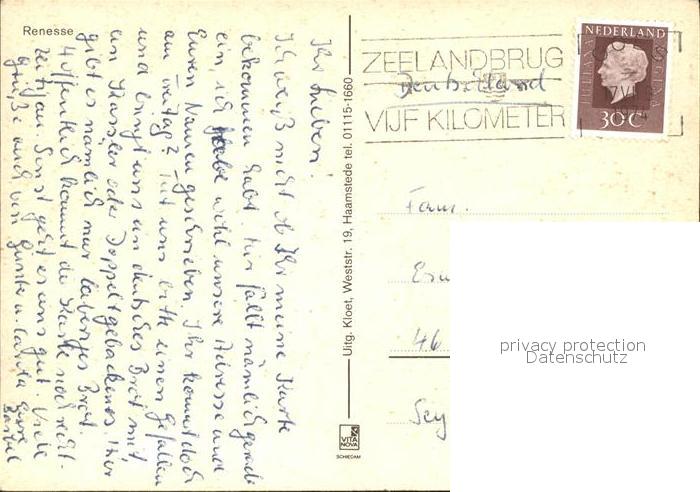 Renesse
Ihr Lieben!
Ich weiß nicht ob Ihr meine Karte
bekommen habt. Mir fällt nämlich gerade
ein, ich habe wohl unsere Adresse und
Euren Namen geschrieben. Ihr kommt doch
am Freitag? Tut uns bitte einen Gefallen
und bringt uns ein deutsches Brot mit
ein Kassler oder Doppeltgebackenes. Hier
gibt es nämlich nur labriges Brot.
Hoffentlich kommt die Karte noch recht-
zeitig an. Sonst geht es uns gut. Viele
Grüße auch von Günter u. Carola Eure
Bärbel
Uitg. Kloet, Weststr. 19, Haamstede tel. 01115-1660
VITA
NOVA
SCHIEDAM
ZEELANDBRUG
VIJF KILOMETER
NEDERLAND
JULIANA
REGINA
30 C
Deutschland
Fam.
46
privacy protection
Datenschutz